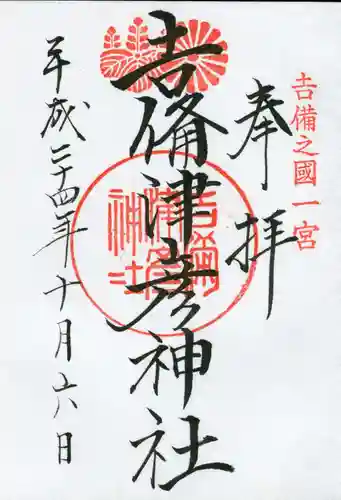 吉備之國一宮
奉拝
吉備津彦神社
平成二十四年十月六日